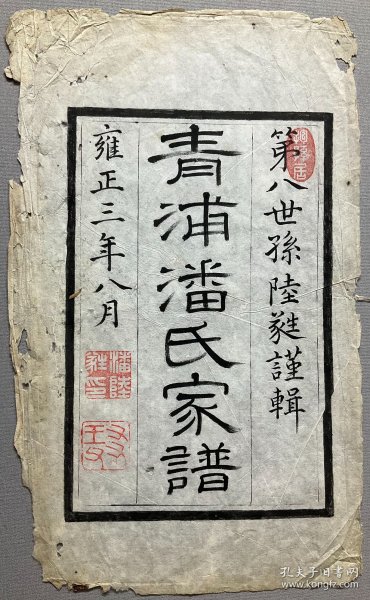 第八世孫陸蕤謹輯
青浦潘氏家譜
雍正三年八月
潘陸
蕤印
孔夫子旧书网
www.kongfz.com